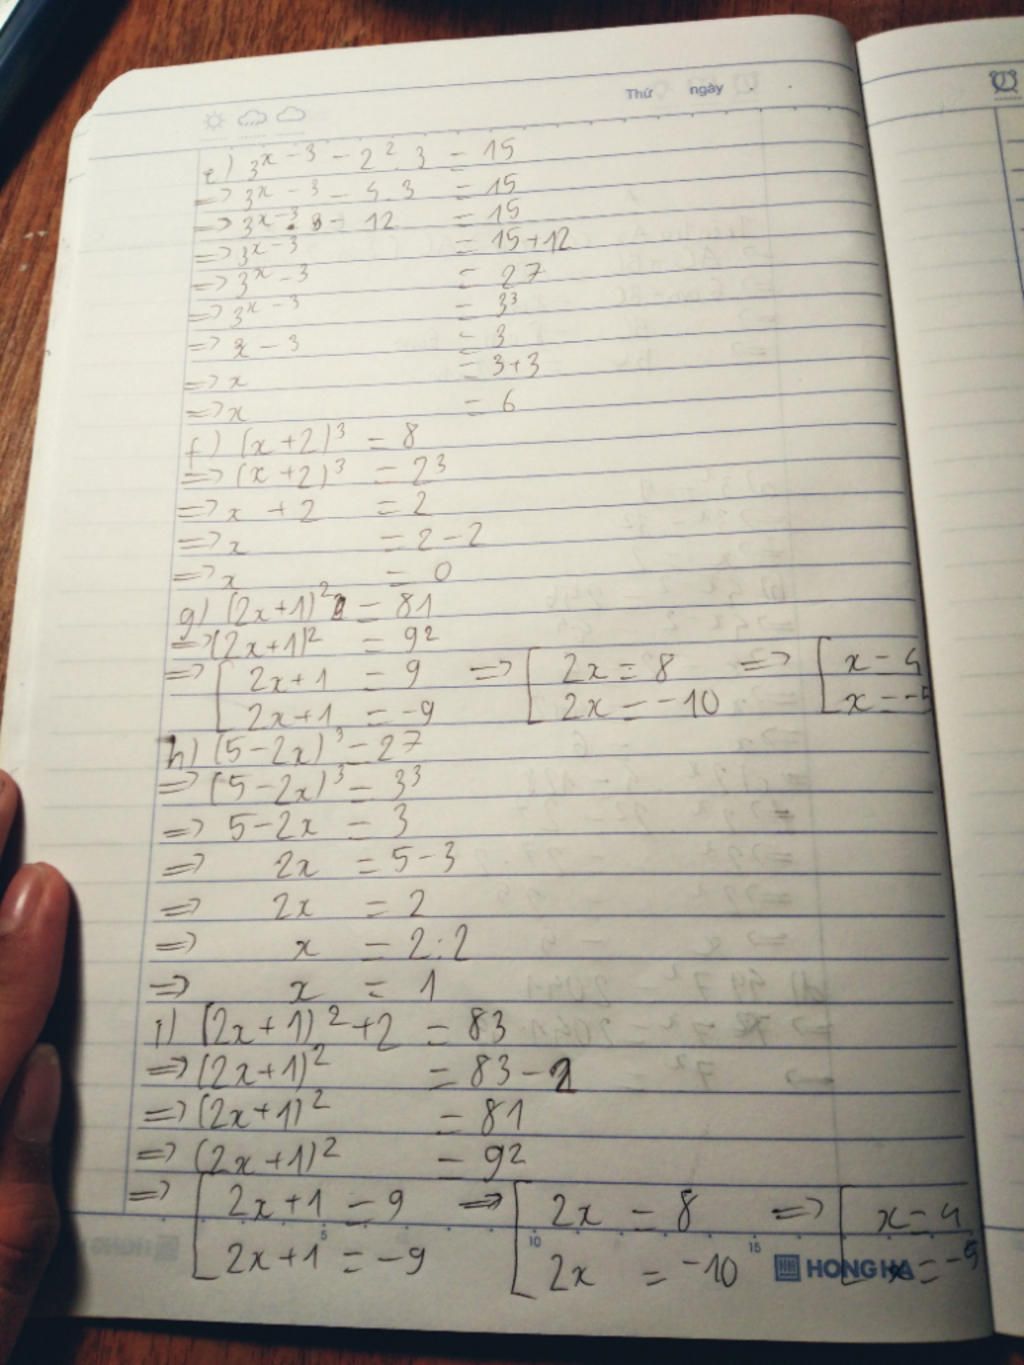 Thứ ngày
e) 3^{x-3} - 2^2.3 = 15
=> 3^{x-3} - 4.3 = 15
=> 3^{x-3} - 12 = 15
=> 3^{x-3} = 15+12
=> 3^{x-3} = 27
=> 3^{x-3} = 3^3
=> x - 3 = 3
=> x = 3+3
=> x = 6
f) (x+2)^3 = 8
=> (x+2)^3 = 2^3
=> x + 2 = 2
=> x = 2-2
=> x = 0
g) (2x+1)^2 = 81
=> (2x+1)^2 = 9^2
=> [ 2x+1 = 9 => [ 2x = 8 => [ x = 4
2x+1 = -9 2x = -10 x = -5
h) (5-2x)^3 = 27
=> (5-2x)^3 = 3^3
=> 5-2x = 3
=> 2x = 5-3
=> 2x = 2
=> x = 2:2
=> x = 1
i) (2x+1)^2+2 = 83
=> (2x+1)^2 = 83-2
=> (2x+1)^2 = 81
=> (2x+1)^2 = 9^2
=> [ 2x+1 = 9 => [ 2x = 8 => [ x = 4
2x+1 = -9 2x = -10 x = -5
5 10 15
HONG HA